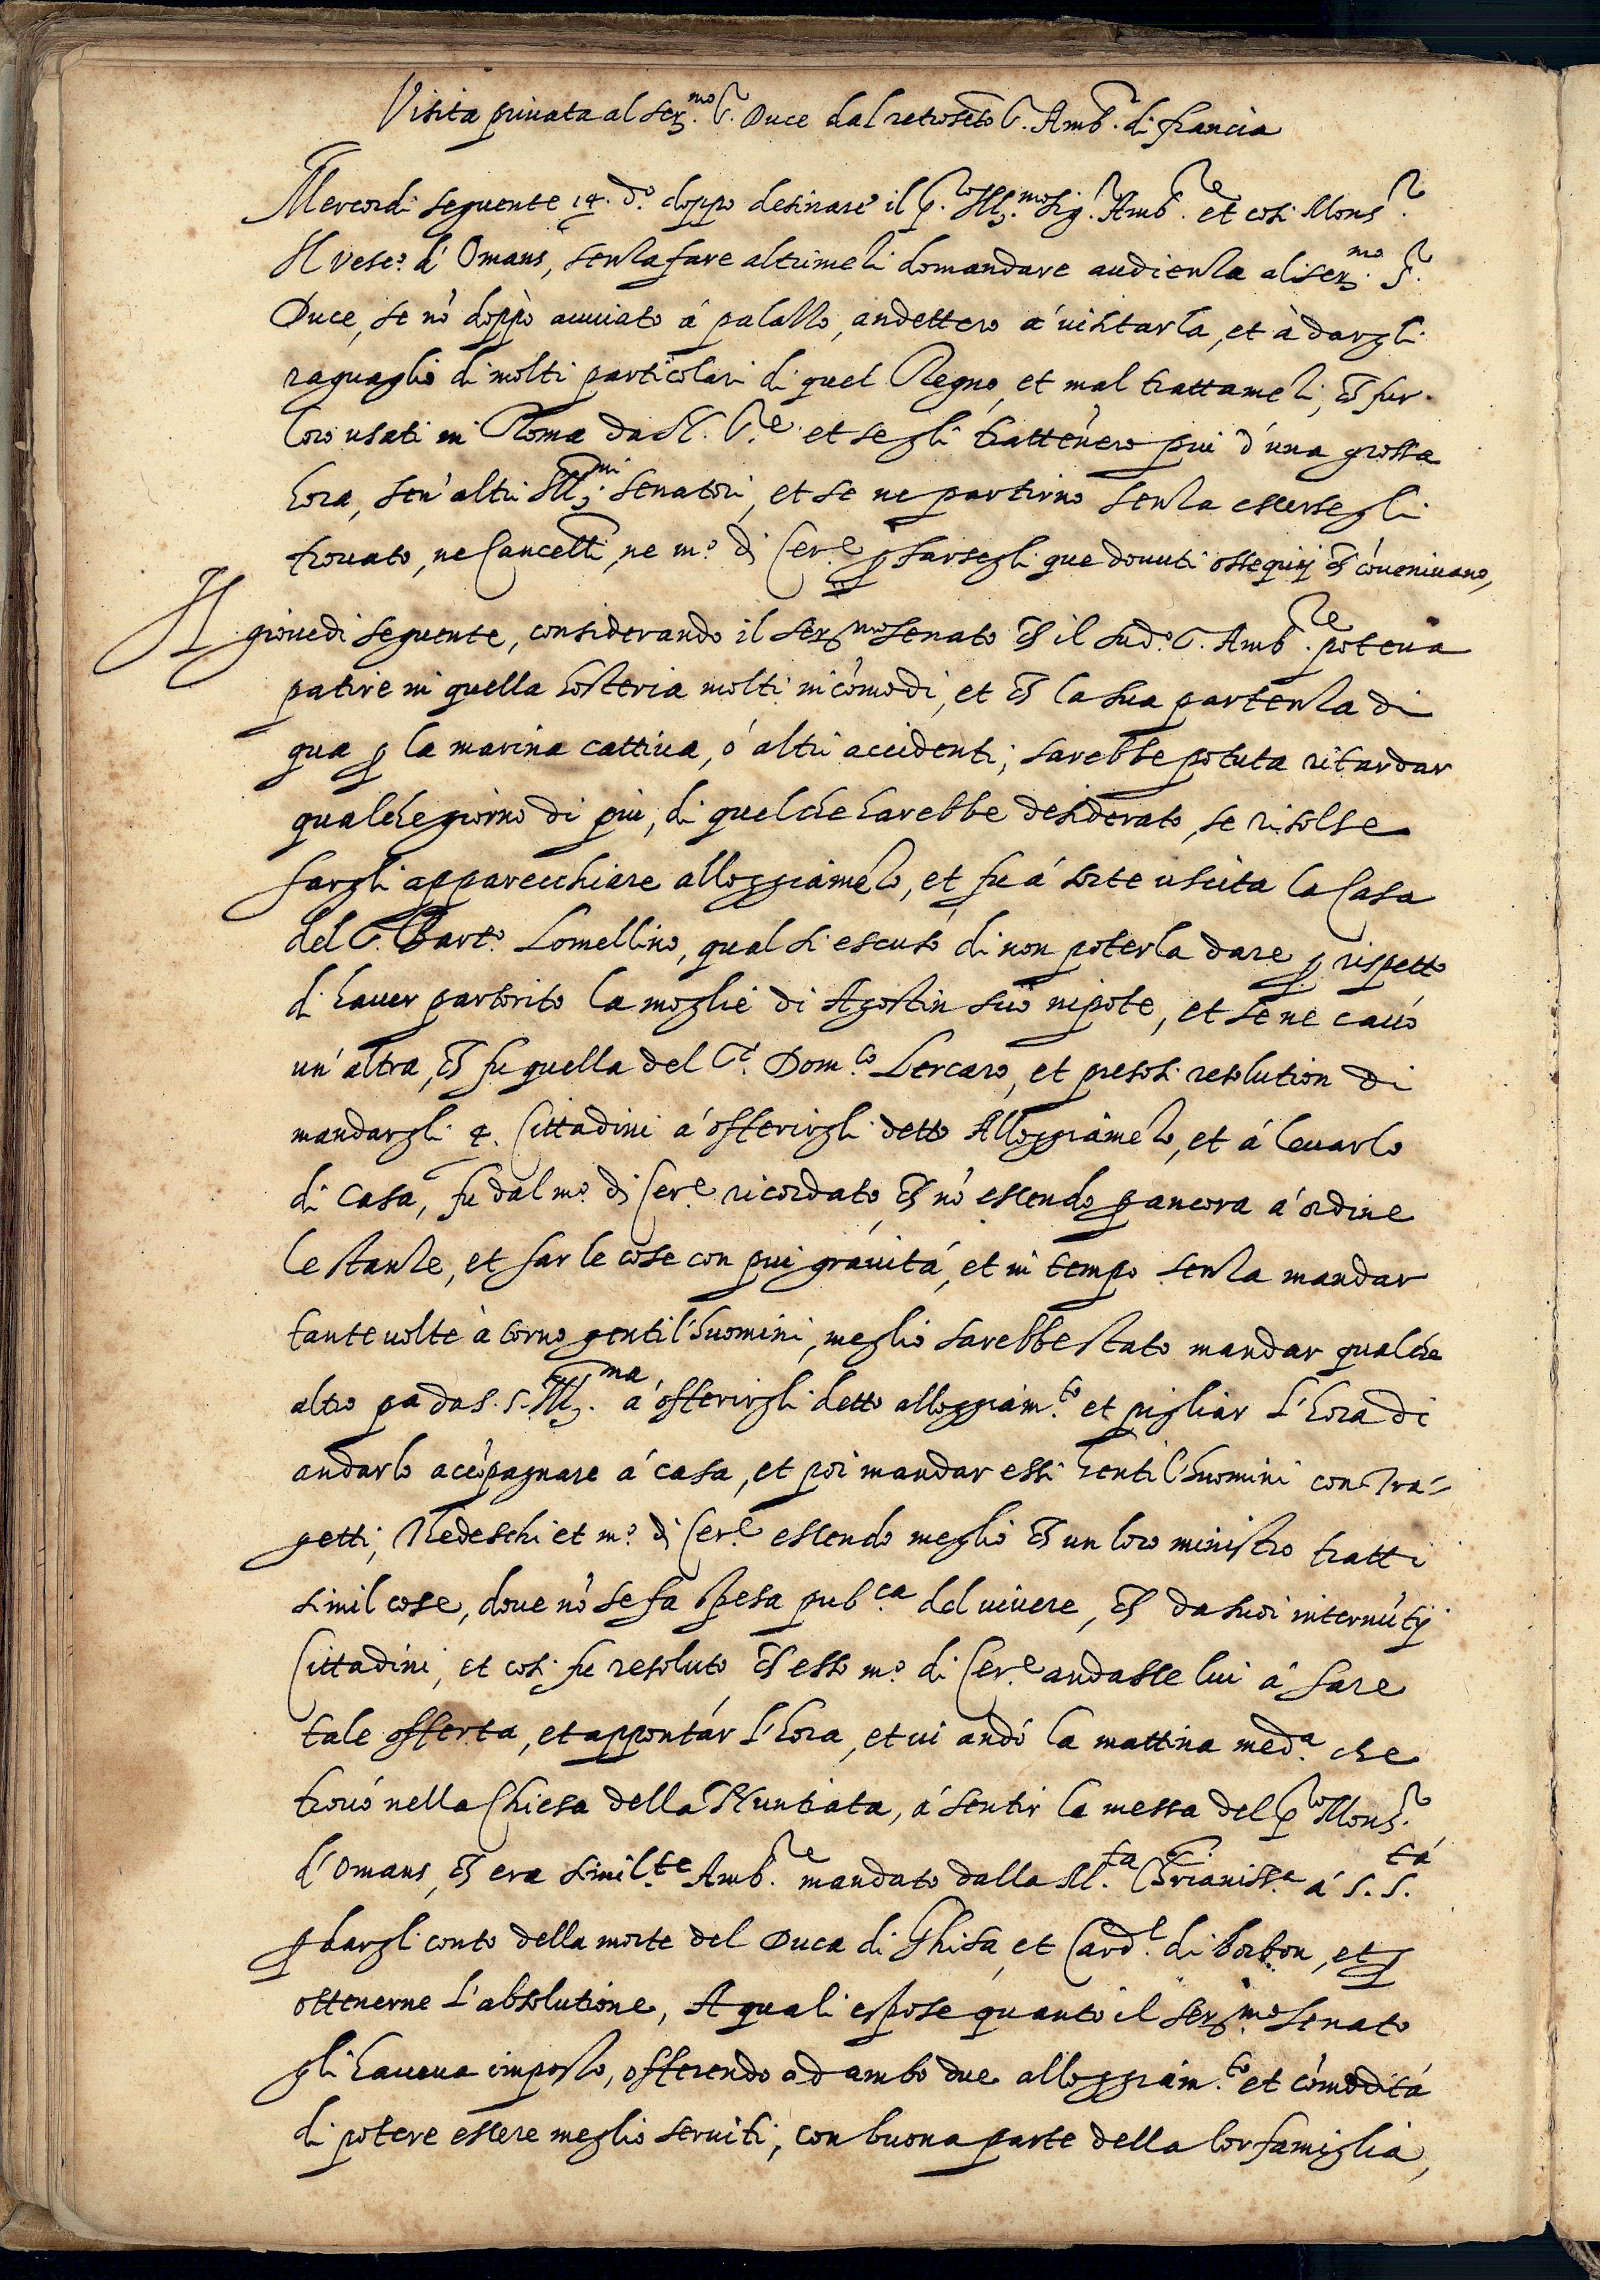 Visita priuata al Ser.mo S. Duce dal retroscto S. Amb.r di francia
Mercordi seguente 14. d.o doppo desinare il p.to Ill.mo Sig.r Amb.re et cosi Mons.r
Il vesc.o d'Omans, senza fare altrimẽti domandare audienza al ser.mo S.r
Duce, se nõ doppò auuiato á palazzo, andettero á uisitarla, et à dargli
raguaglio di molti particolari di quel Regno, et mal trattamẽti, c͠h fur
loro usati in Roma da N. S.re et segli trattẽnero piu d'una grossa
hora, sen' altri Ill.mi Senatori, et se ne partirno senza essersegli
trouato, ne Cancell.i, ne m.o di Cer.e ꝑ farsegli que douuti ossequij c͠h cõueniuano,
Il giouedi seguente, considerando il Ser.mo Senato c͠h il sud.o S. Amb.re poteua
patire in quella hosteria molti incõmodi, et c͠h la sua partenza di
qua ꝑ la marina cattiua, ó altri accidenti, sarebbe potuta ritardar
qualche giorno di piu, di quel che harebbe desiderato, se risolse
fargli apparecchiare alloggiamẽto, et fu á sorte uscita la Casa
del S. Bart.o Lomellino, qual si escusò di non poterla dare ꝑ rispetto
di hauer partorito la moglie di Agostin suo nipote, et se ne cauó
un' altra, c͠h fu quella del S.r Dom.co Lercaro, et presosi resolution di
mandargli 4. Cittadini á offerirgli detto Alloggiamẽto, et á leuarlo
di Casa, fu dal m.o di Cer.e ricordato c͠h nõ essendo ꝑ ancora á ordine
le stanze, et far le cose con piu grauitá, et in tempo senza mandar
tante uolte à torno gentil'huomini, meglio sarebbe stato mandar qualche
altro pa da S. S. Ill.ma á offerirgli detto alloggiam.to et pigliar l'hora di
andarlo acõpagnare á casa, et poi mandar essi gentil'huomini con Tra=
getti, Tedeschi et m.o di Cer.e essendo meglio c͠h un loro ministro tratti
simil cose, doue nõ se fa spesa pub.ca del uiuere, c͠h da suoi internũtij
Cittadini, et cosi fu resoluto c͠h esso m.o di Cer.e andasse lui á fare
tale offerta, et appontár l'hora, et ui andó la mattina med.a che
trouó nella Chiesa della Nuntiata, á sentir la messa del p.to Mons.r
d'Omans, c͠h era simil.te Amb.re mandato dalla M.ta Chr̃ianiss.a á S. S.tá
ꝑ dargli conto della morte del Duca di Ghisa, et Card.l di borbon, et ꝑ
ottenerne l'absolutione, A quali espose quanto il Ser.mo Senato
gli haueua imposto, offerendo ad ambo due alloggiam.to et cõmoditá
di potere essere meglio seruiti, con buona parte della lor famiglia,